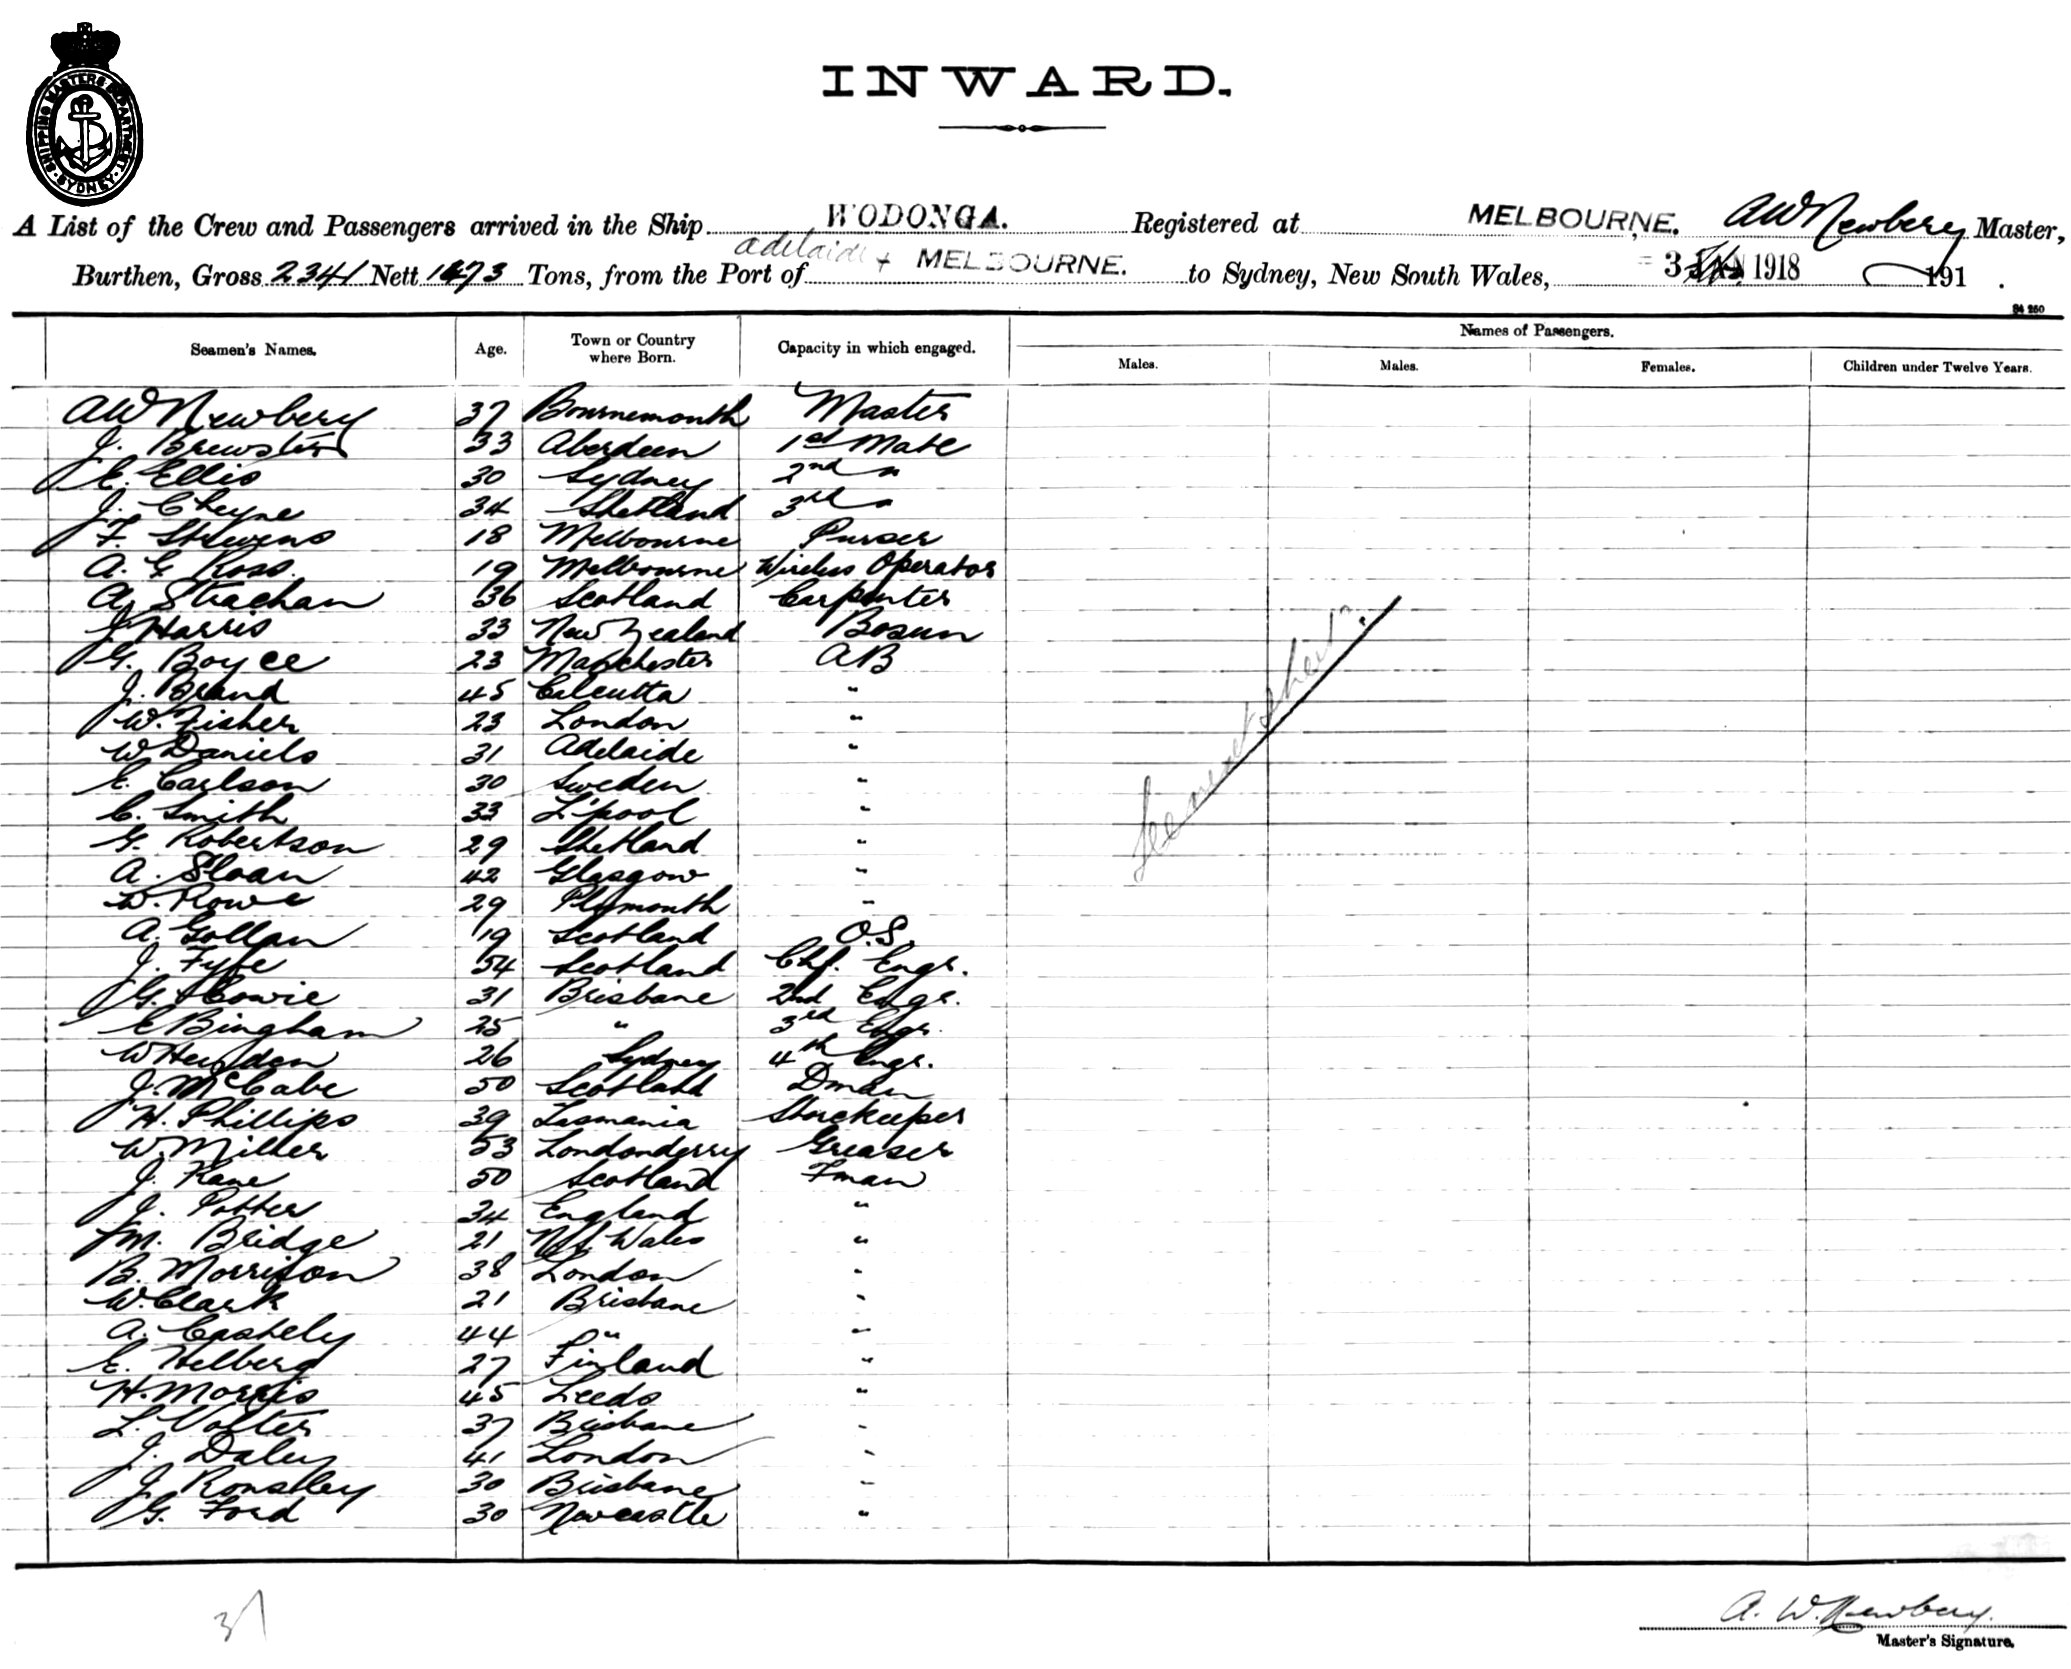 SHIPPING MASTERS DEPARTMENT. SYDNEY.
INWARD.
A List of the Crew and Passengers arrived in the Ship WODONGA. Registered at MELBOURNE. AW Newbery Master,
Burthen, Gross 2341 Nett 1473 Tons, from the Port of Adelaide + MELBOURNE. to Sydney, New South Wales, 3 JAN 1918 191 .
Names of Passengers.
Seamen's Names. Age. Town or Country where Born. Capacity in which engaged. Males. Males. Females. Children under Twelve Years.
AW Newbery 37 Bournemouth Master
J. Brewster 33 Aberdeen 1st Mate
E. Ellis 30 Sydney 2nd "
J. Cheyne 34 Shetland 3rd "
F. Stevens 18 Melbourne Purser
A. G. Ross 19 Melbourne Wireless Operator
A. Strachan 36 Scotland Carpenter
J Harris 33 New Zealand Bosun
G. Boyce 23 Manchester AB
J. Brand 45 Calcutta "
W. Fisher 23 London "
W Daniels 31 Adelaide "
E. Carlson 30 Sweden "
C. Smith 33 L'pool "
G. Robertson 29 Shetland "
A. Sloan 42 Glasgow "
W. Rowe 29 Plymouth "
A. Gollan 19 Scotland O.S.
J. Fyfe 54 Scotland Chf. Engr.
G. Cowie 31 Brisbane 2nd Engr.
E Bingham 25 " 3rd Engr.
W 26 Sydney 4th Engr.
J. McCabe 50 Scotland Dman
H. Phillips 39 Tasmania Storekeeper
W. Miller 53 Londonderry Greaser
J. Kane 50 Scotland Fman
J. Potter 34 England "
M. Bridge 21 N.S. Wales "
B. Morrison 38 London "
W. Clark 21 Brisbane "
A. Cashely 44 " "
E. Helberg 27 Finland "
H. Morris 45 Leeds "
L. Volter 37 Brisbane "
J. Daley 41 London "
J. 30 Brisbane "
G. Ford 30 Newcastle "
See next sheet.
37
A. W. Newbery.
Master's Signature.